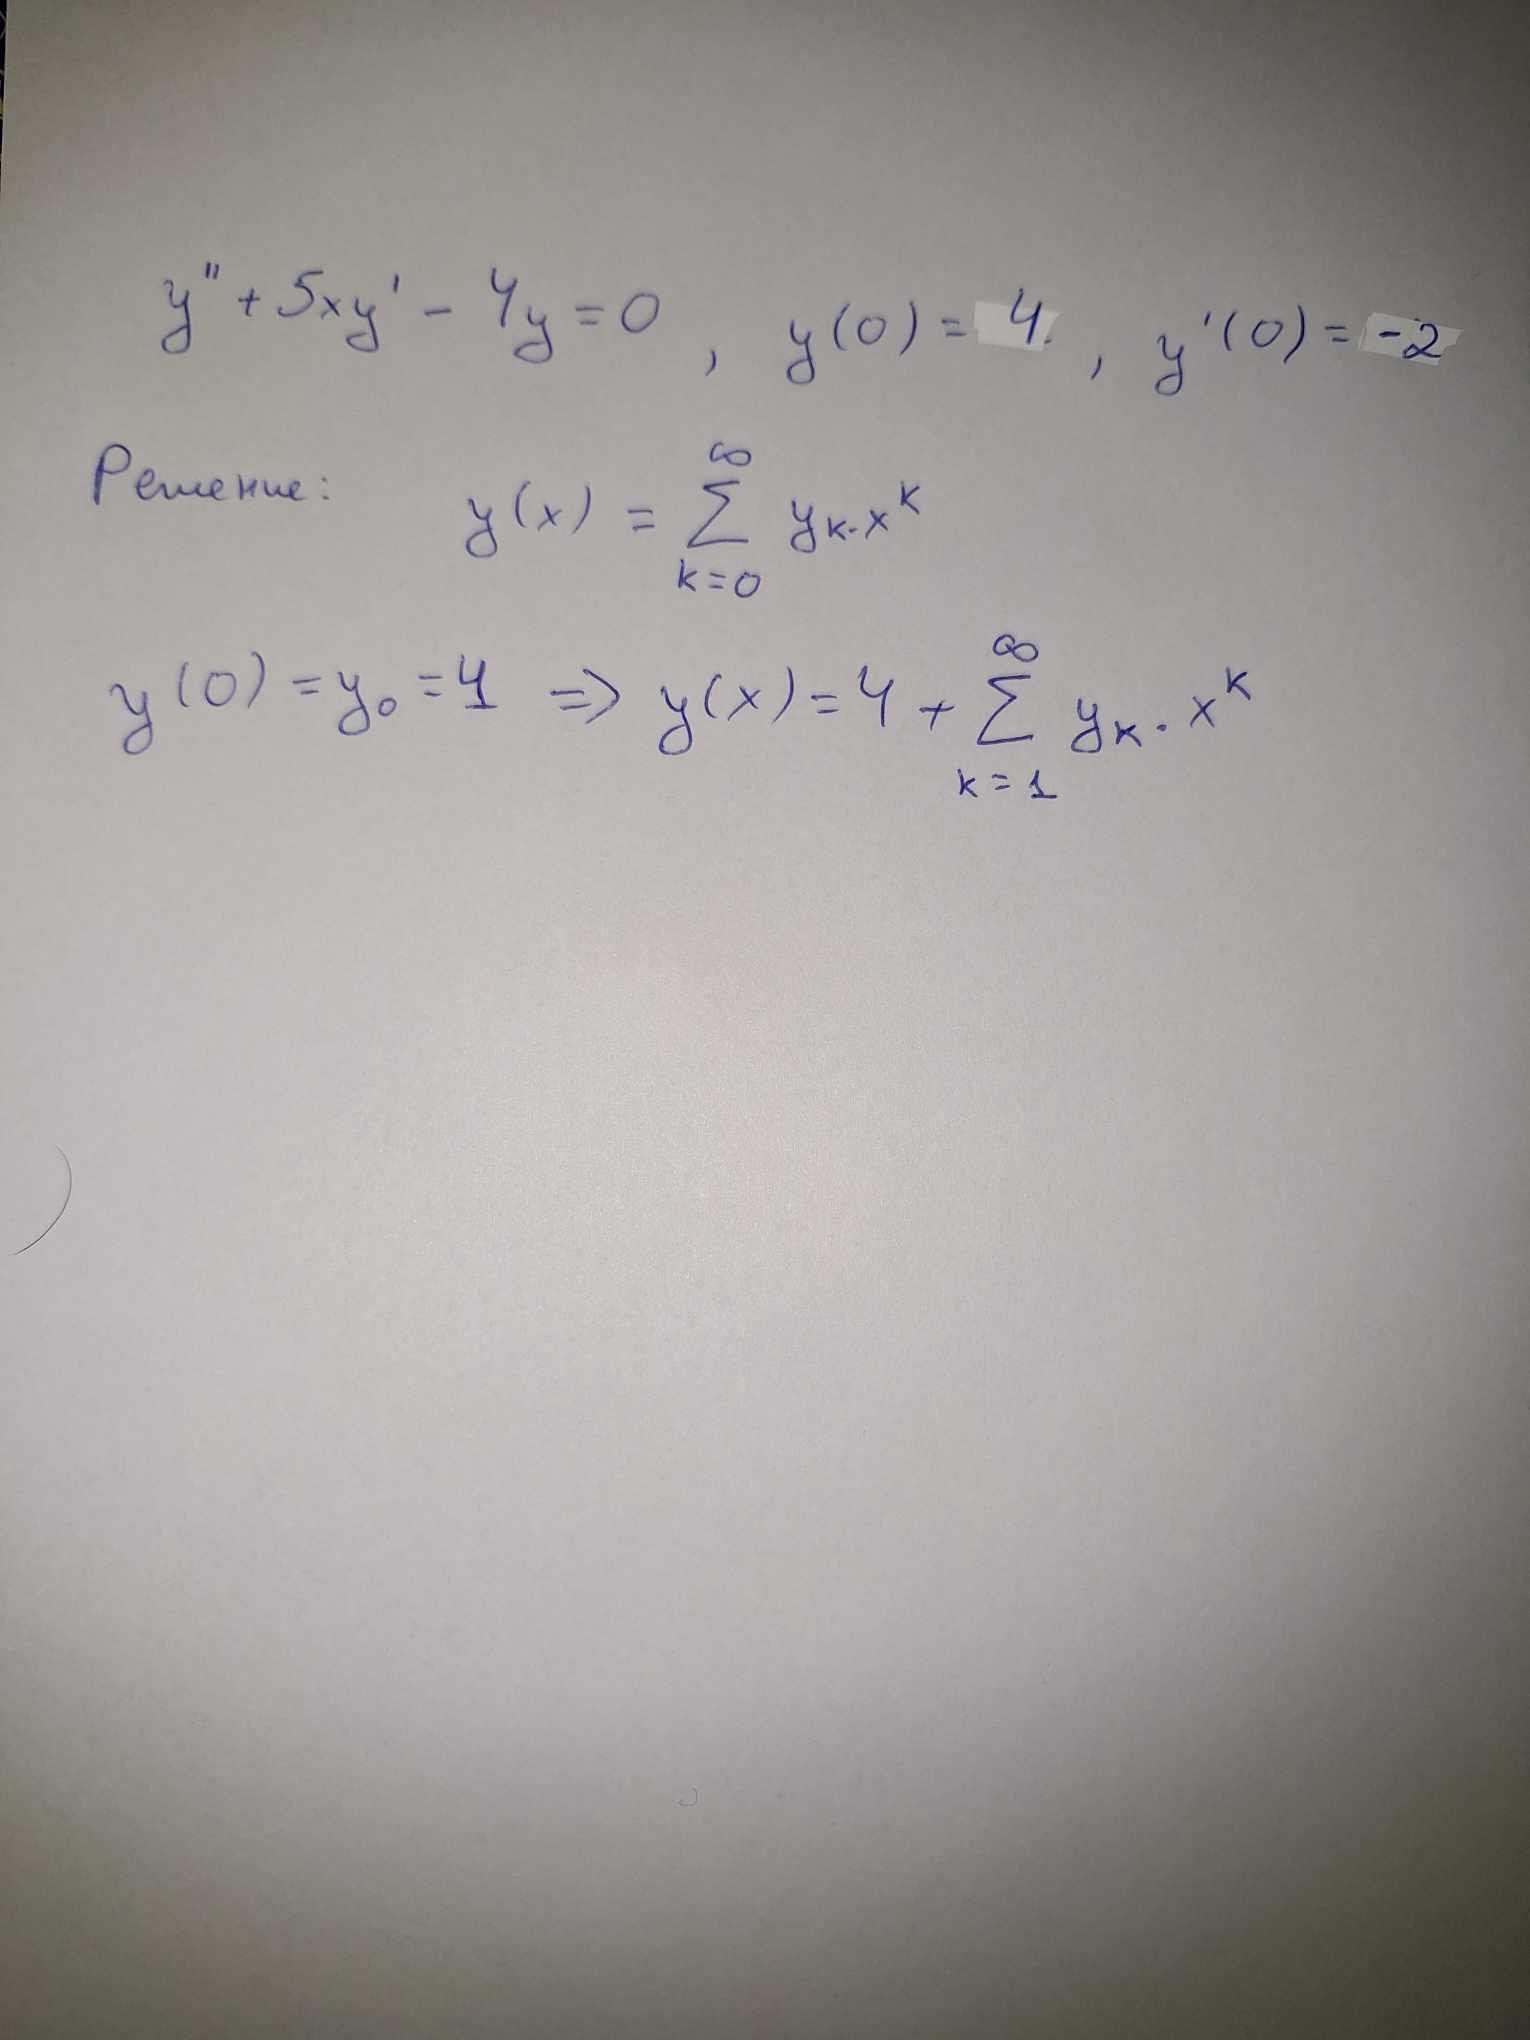 y'' + 5xy' - 4y = 0 , y(0) = 4. , y'(0) = -2
Решение: y(x) = ∞ Σ k=0 yₖ·xᵏ
y(0) = y₀ = 4 => y(x) = 4 + ∞ Σ k=1 yₖ·xᵏ